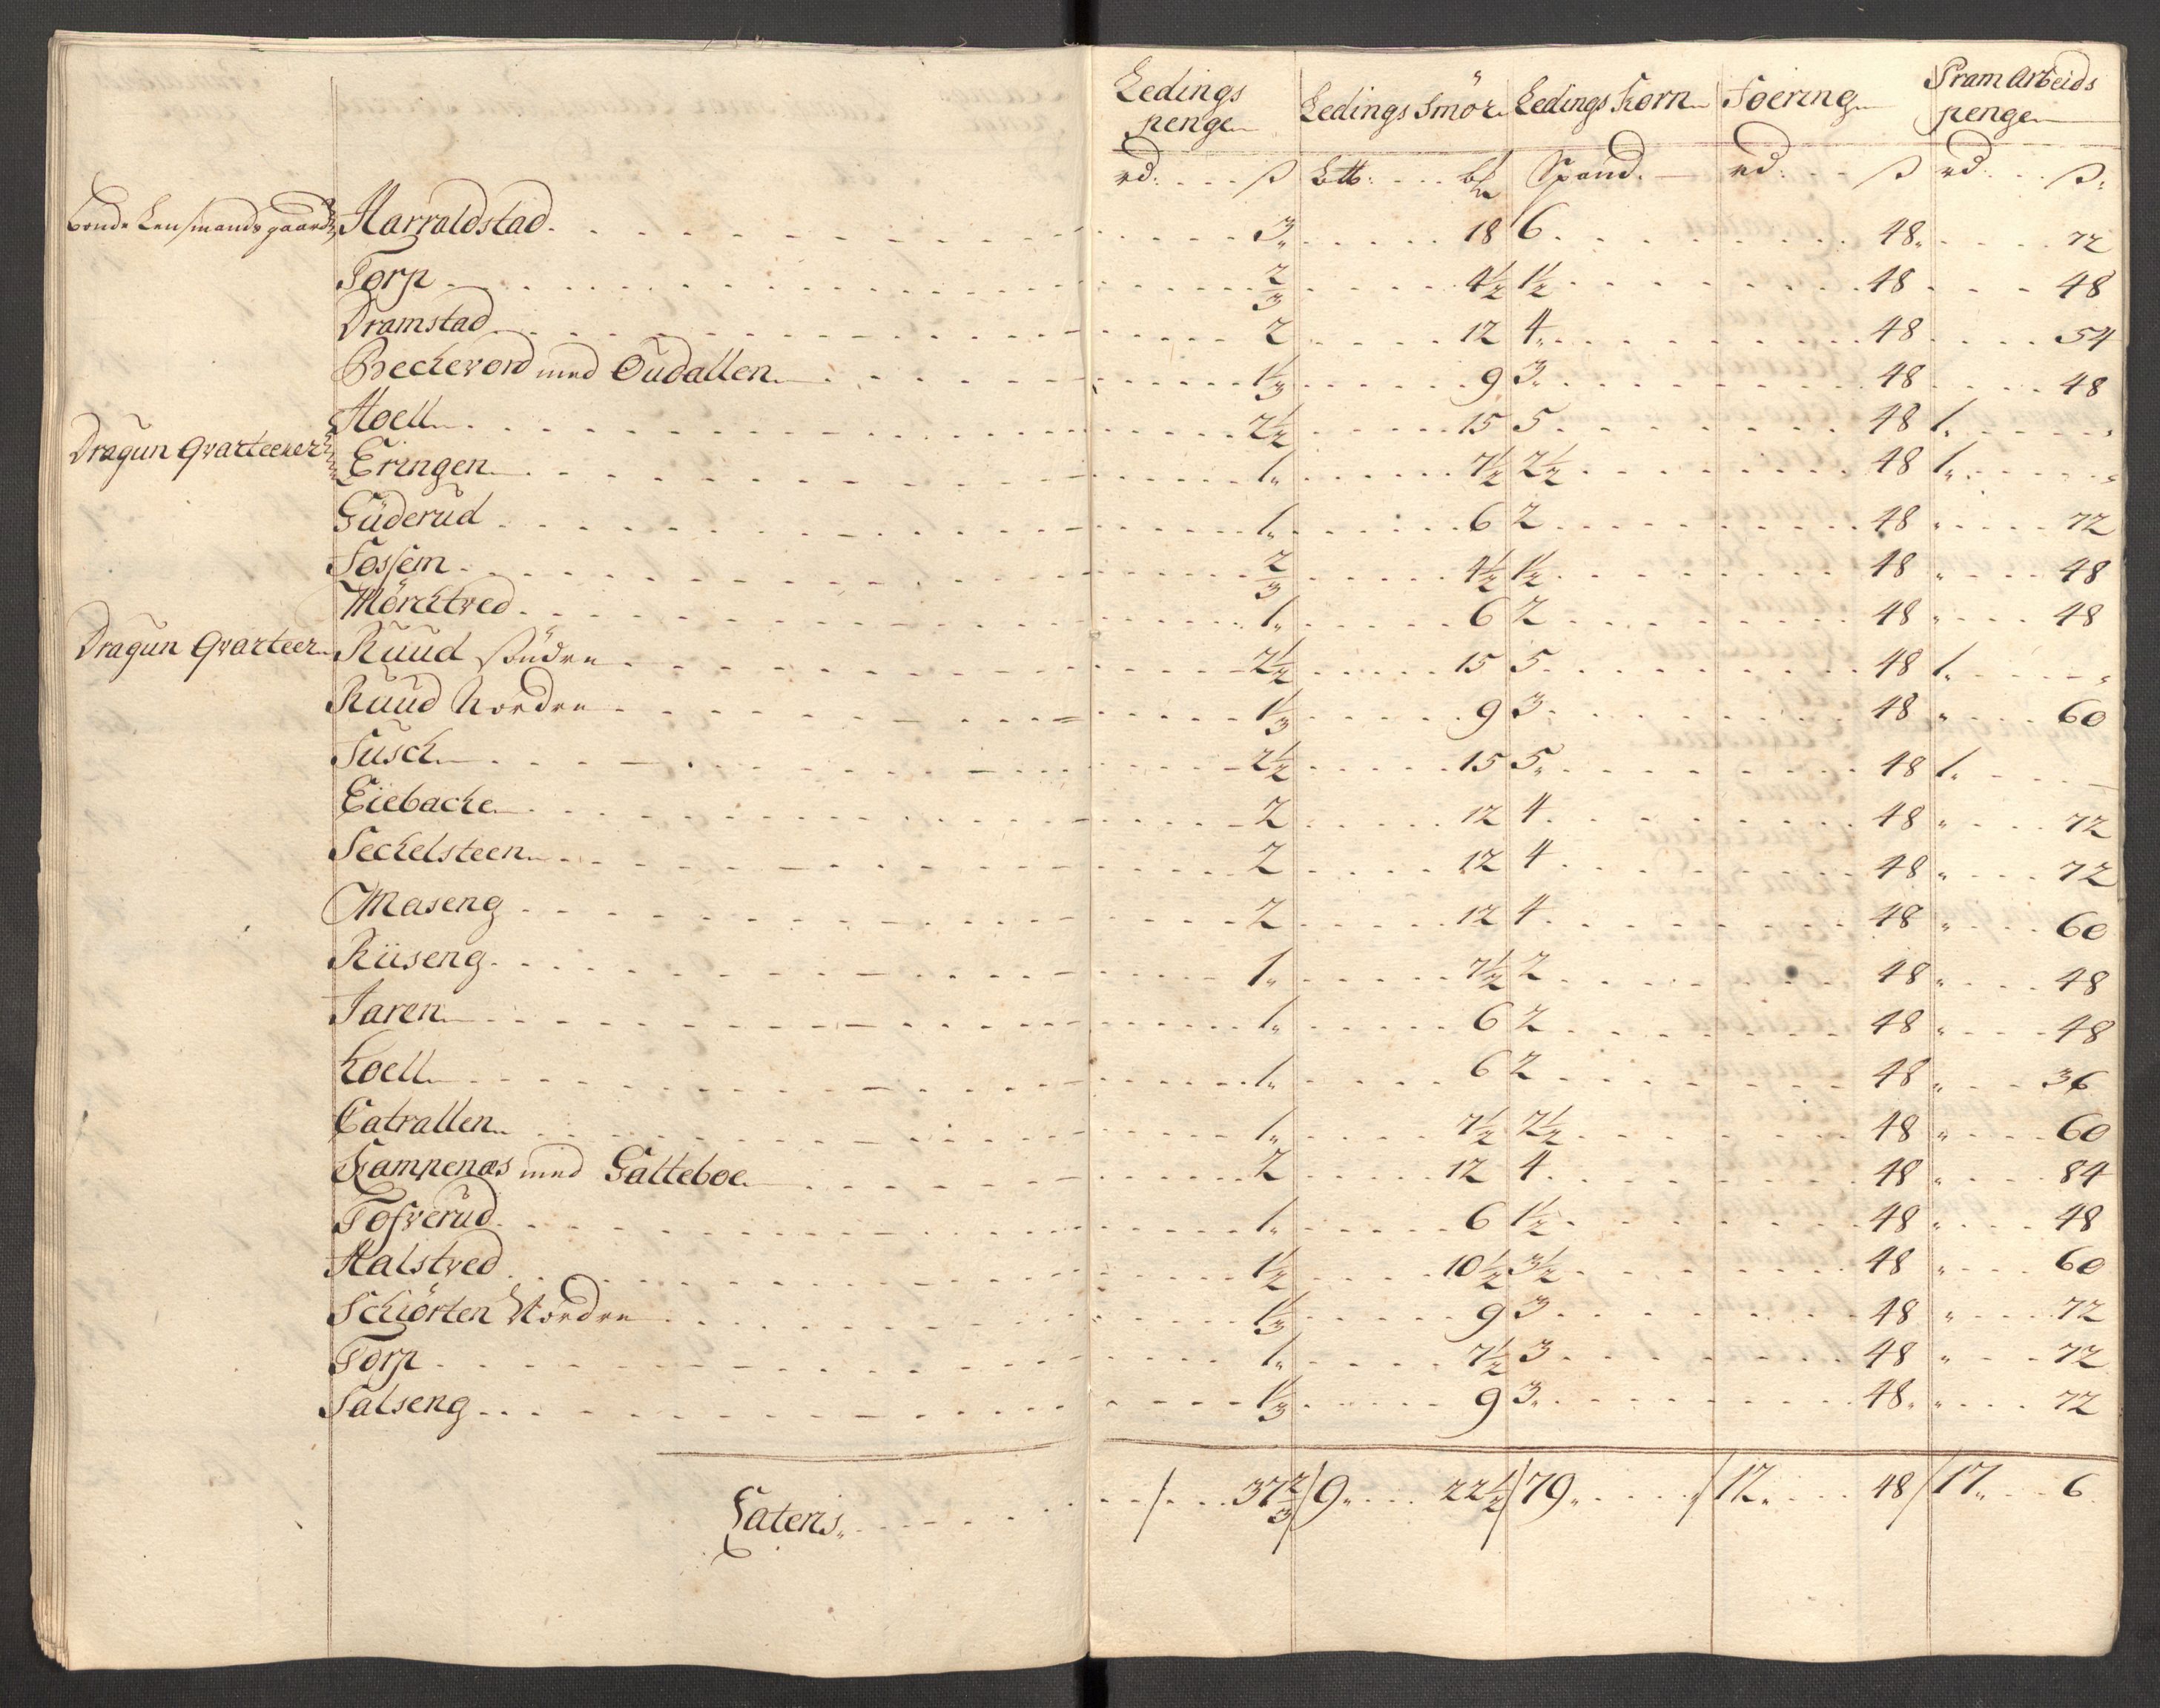 Ledings penge Ledings Smör Ledings Korn Foering Pram Arbeids penge
rd: ß Btt: Spand. rd: ß rd ß:
Bonde Lensmands gaard Harraldstad 3 18 6 48 72
Torp 2/3 4½ 1½ 48 48
Dramstad 2 12 4 48 54
Beckevold med Oudallen 1⅓ 9 3 48 48
Hoell 2½ 15 5 48 1 "
Dragun Qvarteerer Eringen 1 7½ 2½ 48 1 "
Güderud 1 6 2 48 " 72
Fossem 2/3 4½ 1½ 48 " 48
Mörchtved 1 6 2 48 " 48
Dragun Qvarteer Ruud Söndre 2½ 15 5 48 1 "
Ruud Nordre 1⅓ 9 3 48 " 60
Tusch 2½ 15 5 48 1
Eiebacke 2 12 4 48 " 72
Seckelsteen 2 12 4 48 " 72
Maseng 2 12 4 48 " 60
Riiseng 1 7½ 2 48 " 48
Jaren 1 6 2 48 " 48
Koell 1 6 2 48 " 36
Catrallen 1 7½ 2½ 48 " 60
Kampenæs med Galteboe 2 12 4 48 " 84
Tofverud 1 6 1½ 48 " 48
Halstved 1½ 10½ 3½ 48 " 60
Schiörten Nordre 1⅓ 9 3 48 " 72
Torp 1 7½ 3 48 " 72
Salseng 1⅓ 9 3 48 " 72
Lateris / 37⅔ / 9 22½ / 79 / 12 48 / 17 6